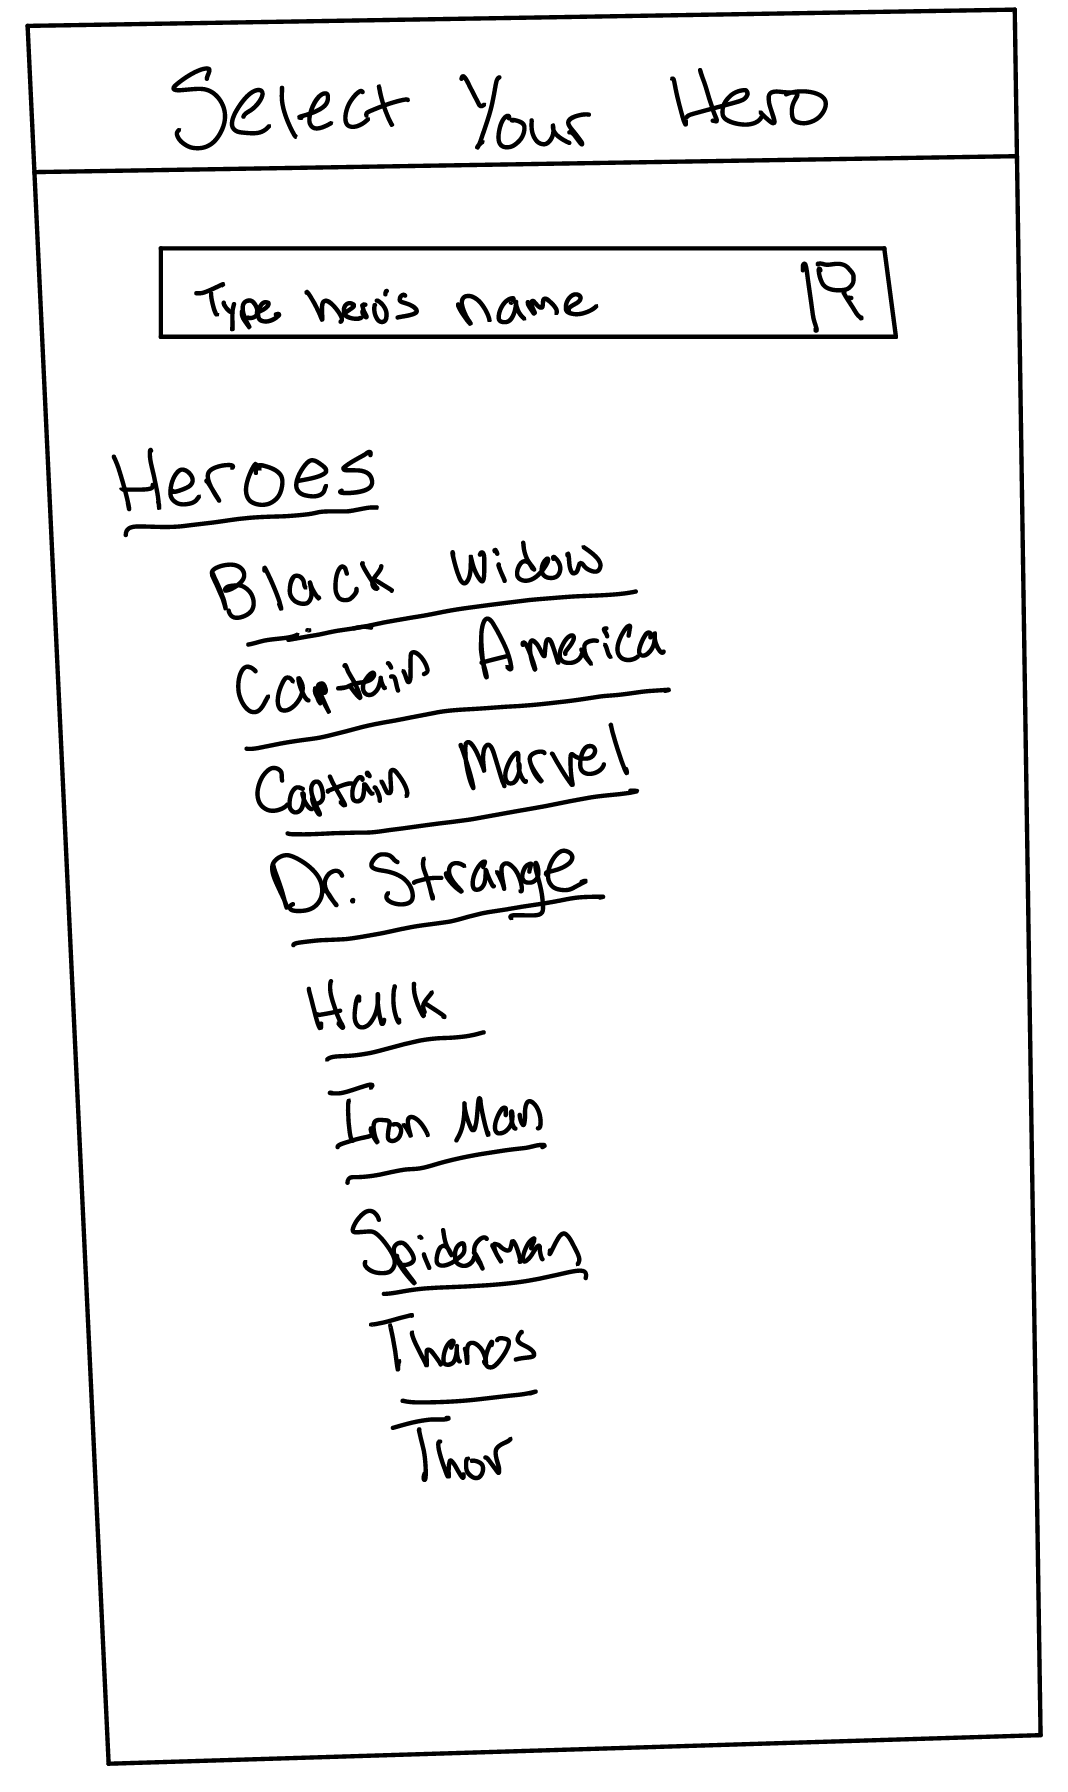 Select Your Hero
Type hero's name
Heroes
Black Widow
Captain America
Captain Marvel
Dr. Strange
Hulk
Iron Man
Spiderman
Thanos
Thor